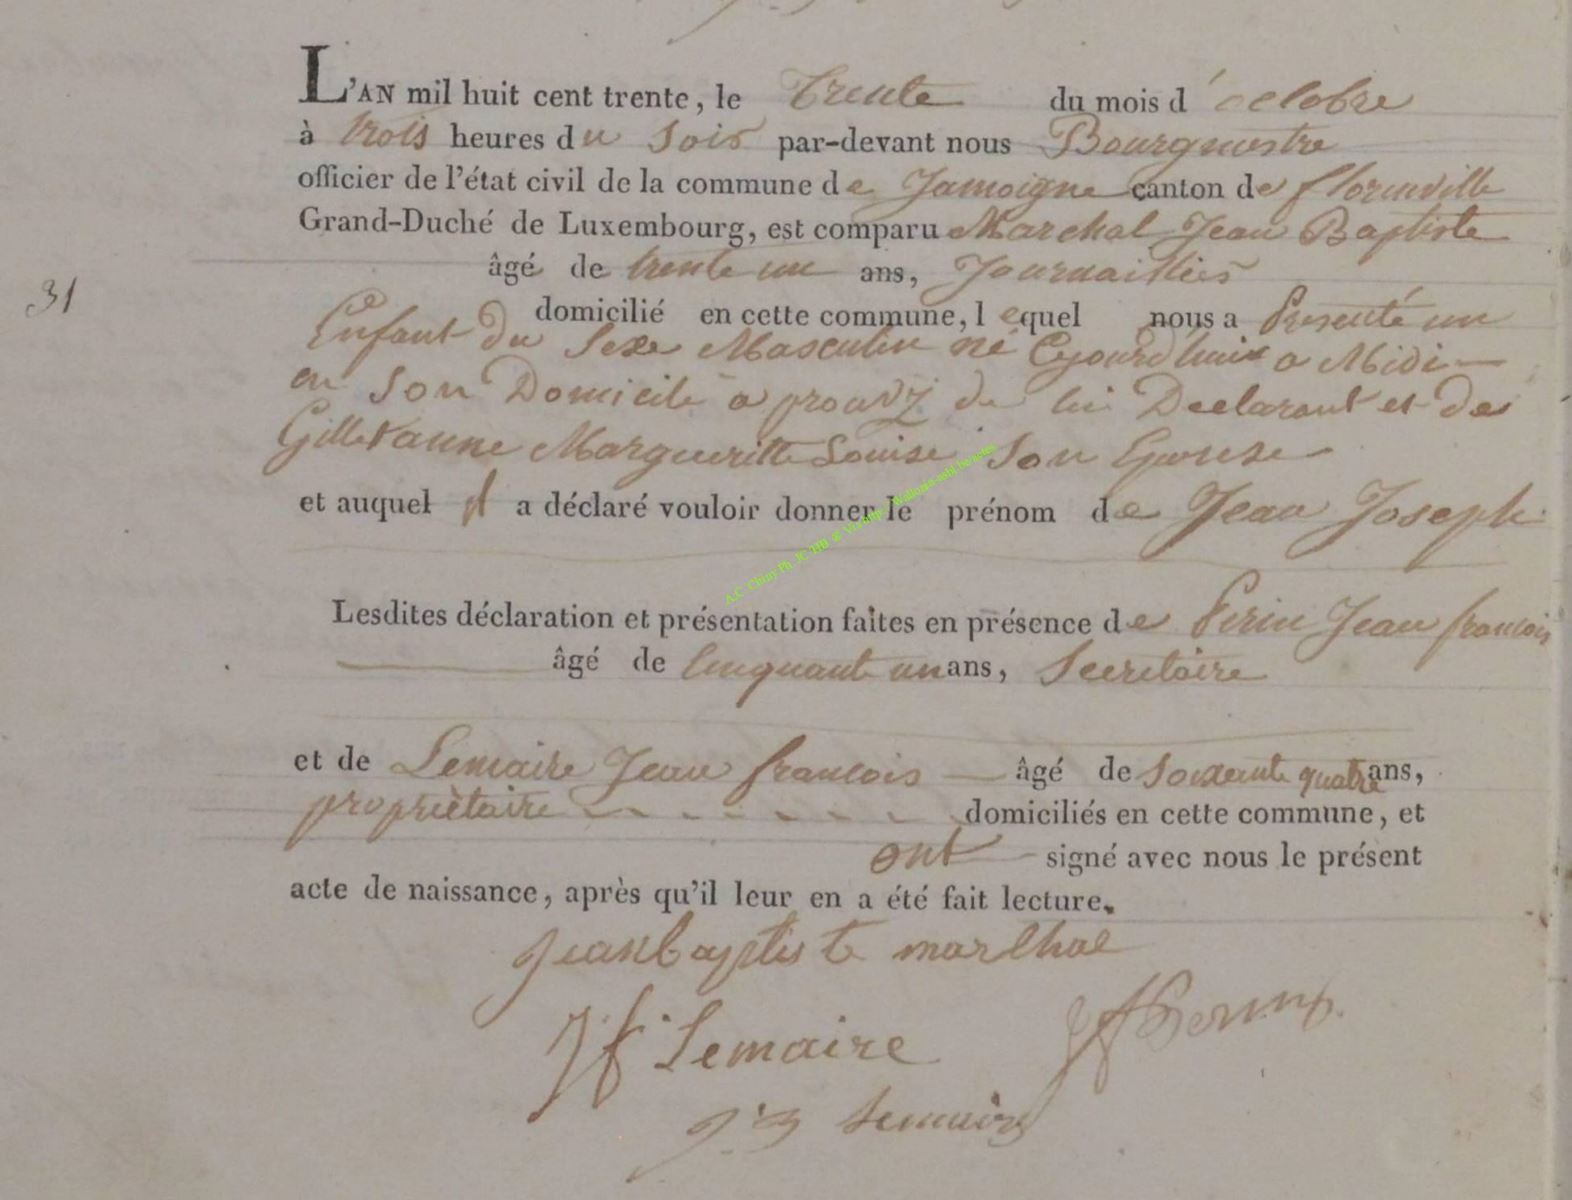 L'AN mil huit cent trente, le trente du mois d'octobre
à trois heures du soir par-devant nous Bourgmestre
officier de l'état civil de la commune de Jamoigne canton de florenville
Grand-Duché de Luxembourg, est comparu Marchal Jean Baptiste
âgé de trente un ans, Journaillier
31
domicilié en cette commune, lequel nous a Presenté un
Enfant du Sexe Masculin né Cejourd'huix a Midi
en Son Domicile a prouvz de lui Declarant et de
Gillet anne Margueritte Louise Son Epouse
et auquel il a déclaré vouloir donner le prénom de Jean Joseph
Lesdites déclaration et présentation faites en présence de Perin Jean francois
âgé de Cinquant un ans, Secretaire
et de Lemaire Jean francois âgé de Soixante quatre ans,
propriètaire domiciliés en cette commune, et
ont signé avec nous le présent
acte de naissance, après qu'il leur en a été fait lecture.
jeanbaptiste marchal
Jf Lemaire